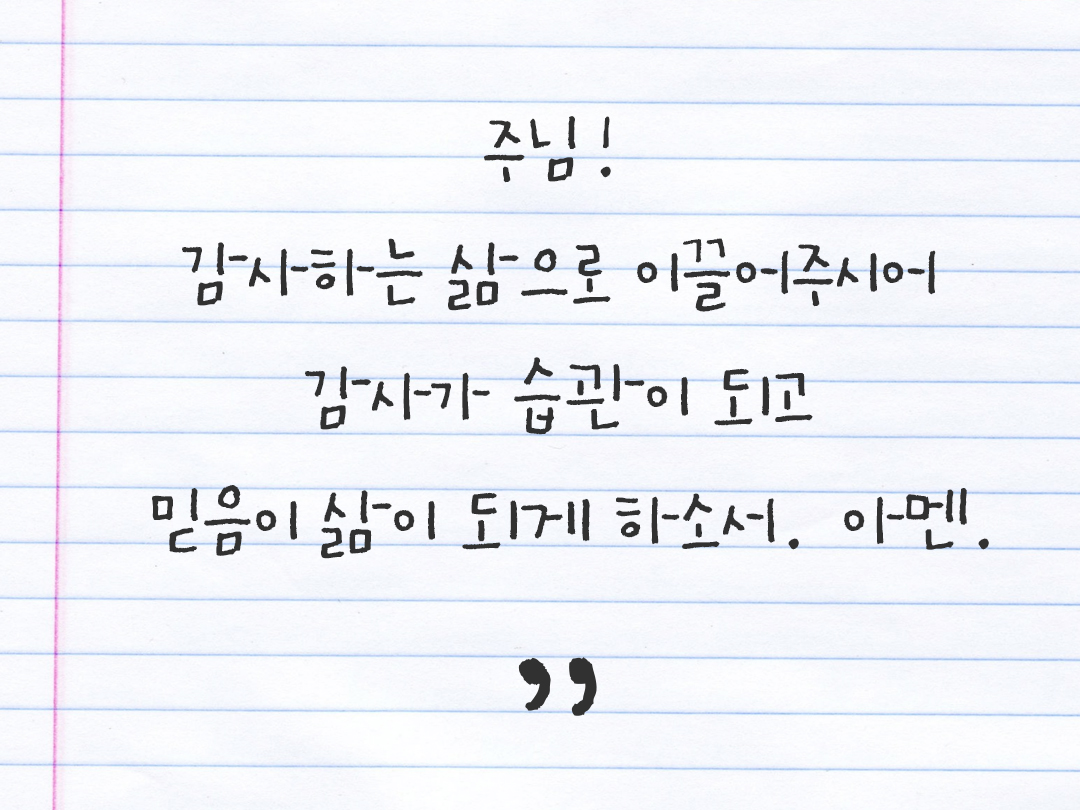 주님!
감사하는 삶으로 이끌어주시어
감사가 습관이 되고
믿음이 삶이 되게 하소서. 아멘.
”